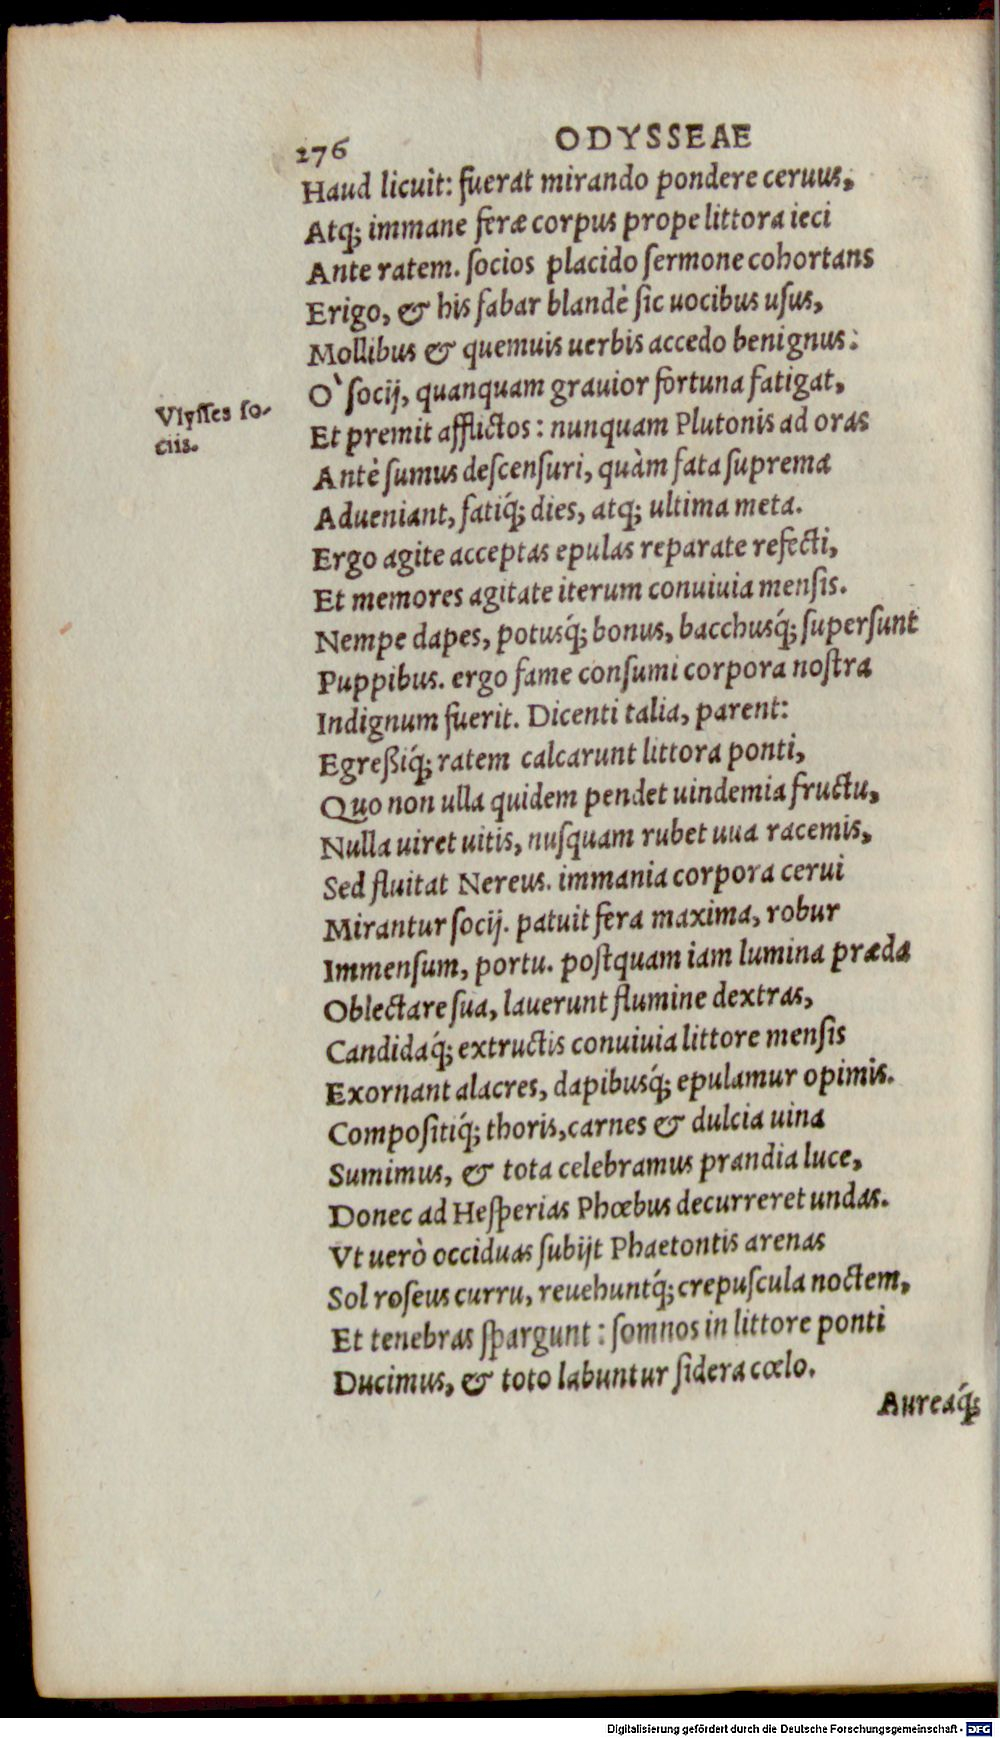 276 ODYSSEAE
Haud licuit: fuerat mirando pondere ceruus,
Atq; immane feræ corpus prope littora ieci
Ante ratem. socios placido sermone cohortans
Erigo, & his fabar blandè sic uocibus usus,
Mollibus & quemuis uerbis accedo benignus:
O` socij, quanquam grauior fortuna fatigat,
Vlysses so-
ciis.
Et premit afflictos: nunquam Plutonis ad oras
Antè sumus descensuri, quàm fata suprema
Adueniant, fatiq́; dies, atq; ultima meta.
Ergo agite acceptas epulas reparate refecti,
Et memores agitate iterum conuiuia mensis.
Nempe dapes, potusq́; bonus, bacchusq́; supersunt
Puppibus. ergo fame consumi corpora nostra
Indignum fuerit. Dicenti talia, parent:
Egreßiq́; ratem calcarunt littora ponti,
Quo non ulla quidem pendet uindemia fructu,
Nulla uiret uitis, nusquam rubet uua racemis,
Sed fluitat Nereus. immania corpora cerui
Mirantur socij. patuit fera maxima, robur
Immensum, portu. postquam iam lumina præda
Oblectare sua, lauerunt flumine dextras,
Candidaq́; extructis conuiuia littore mensis
Exornant alacres, dapibusq́; epulamur opimis.
Compositiq́; thoris, carnes & dulcia uina
Sumimus, & tota celebramus prandia luce,
Donec ad Hesperias Phœbus decurreret undas.
Vt uerò occiduas subijt Phaetontis arenas
Sol roseus curru, reuehuntq́; crepuscula noctem,
Et tenebras spargunt: somnos in littore ponti
Ducimus, & toto labuntur sidera cœlo.
Aureaq́;
Digitalisierung gefördert durch die Deutsche Forschungsgemeinschaft - DFG